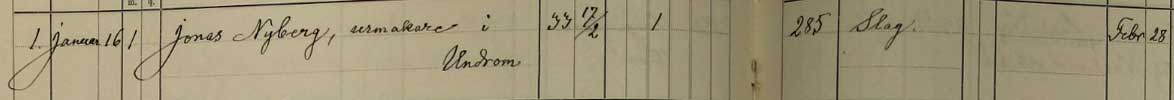 m. q.
1. Januari 16 1 Jonas Nyberg, urmakare i 33 17/2 1 285 Slag. Febr 28
Undrom